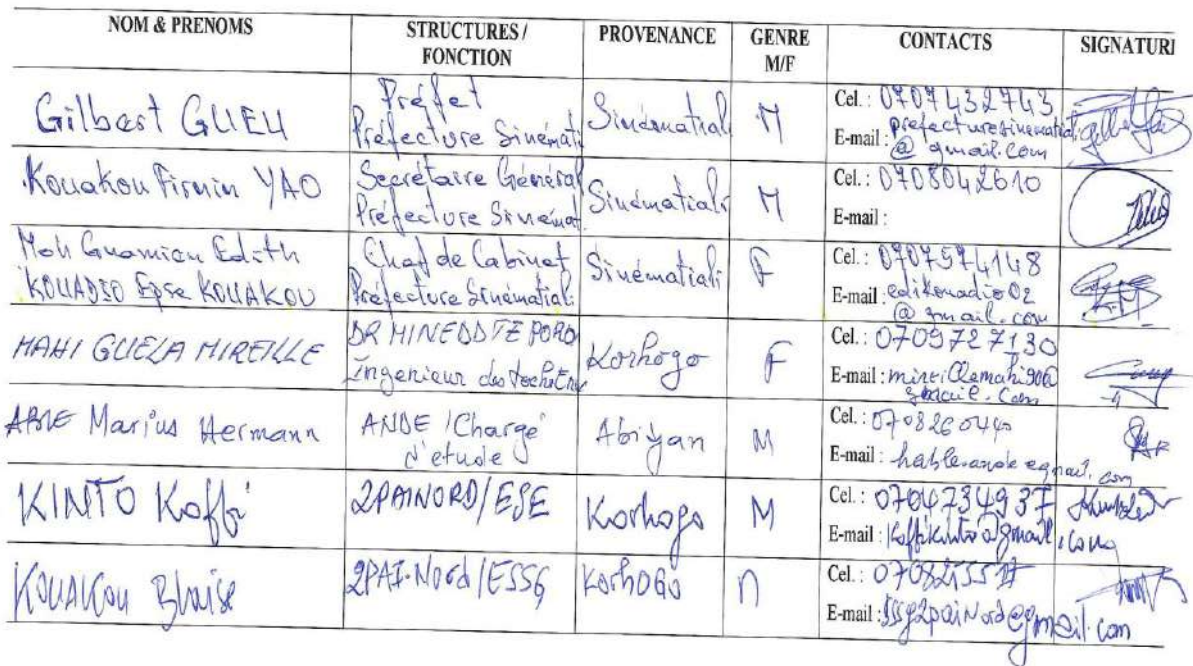 NOM & PRENOMS STRUCTURES / FONCTION PROVENANCE GENRE M/F CONTACTS SIGNATURE
Gilbert GUEU Préfet Préfecture Sinémati Sinématiali M Cel. : 0707432743 E-mail : prefecturesinematiali @ gmail.com
Kouakou Firmin YAO Secrétaire Général Préfecture Sinémat Sinématiali M Cel. : 0708042610 E-mail :
Moh Gnamien Edith KOUADIO Epse KOUAKOU Chef de Cabinet Préfecture Sinématiali Sinématiali F Cel. : 0707574148 E-mail : edikouadio02 @ gmail.com
MAHI GUELA MIREILLE DR MINEDDTE PORO Ingenieur des techniques Korhogo F Cel. : 0709727130 E-mail : mireillemahi90@ gmail.com
ABLE Marius Hermann ANDE / Chargé d'etude Abidjan M Cel. : 0708260440 E-mail : hable.ande@gmail.com
KINTO Koffi 2PAINORD/ESE Korhogo M Cel. : 0704734937 E-mail : Koffikinto@gmail.com
KOUAKOU Blaise 2PAI-Nord/ESSG KorhoGo M Cel. : E-mail :